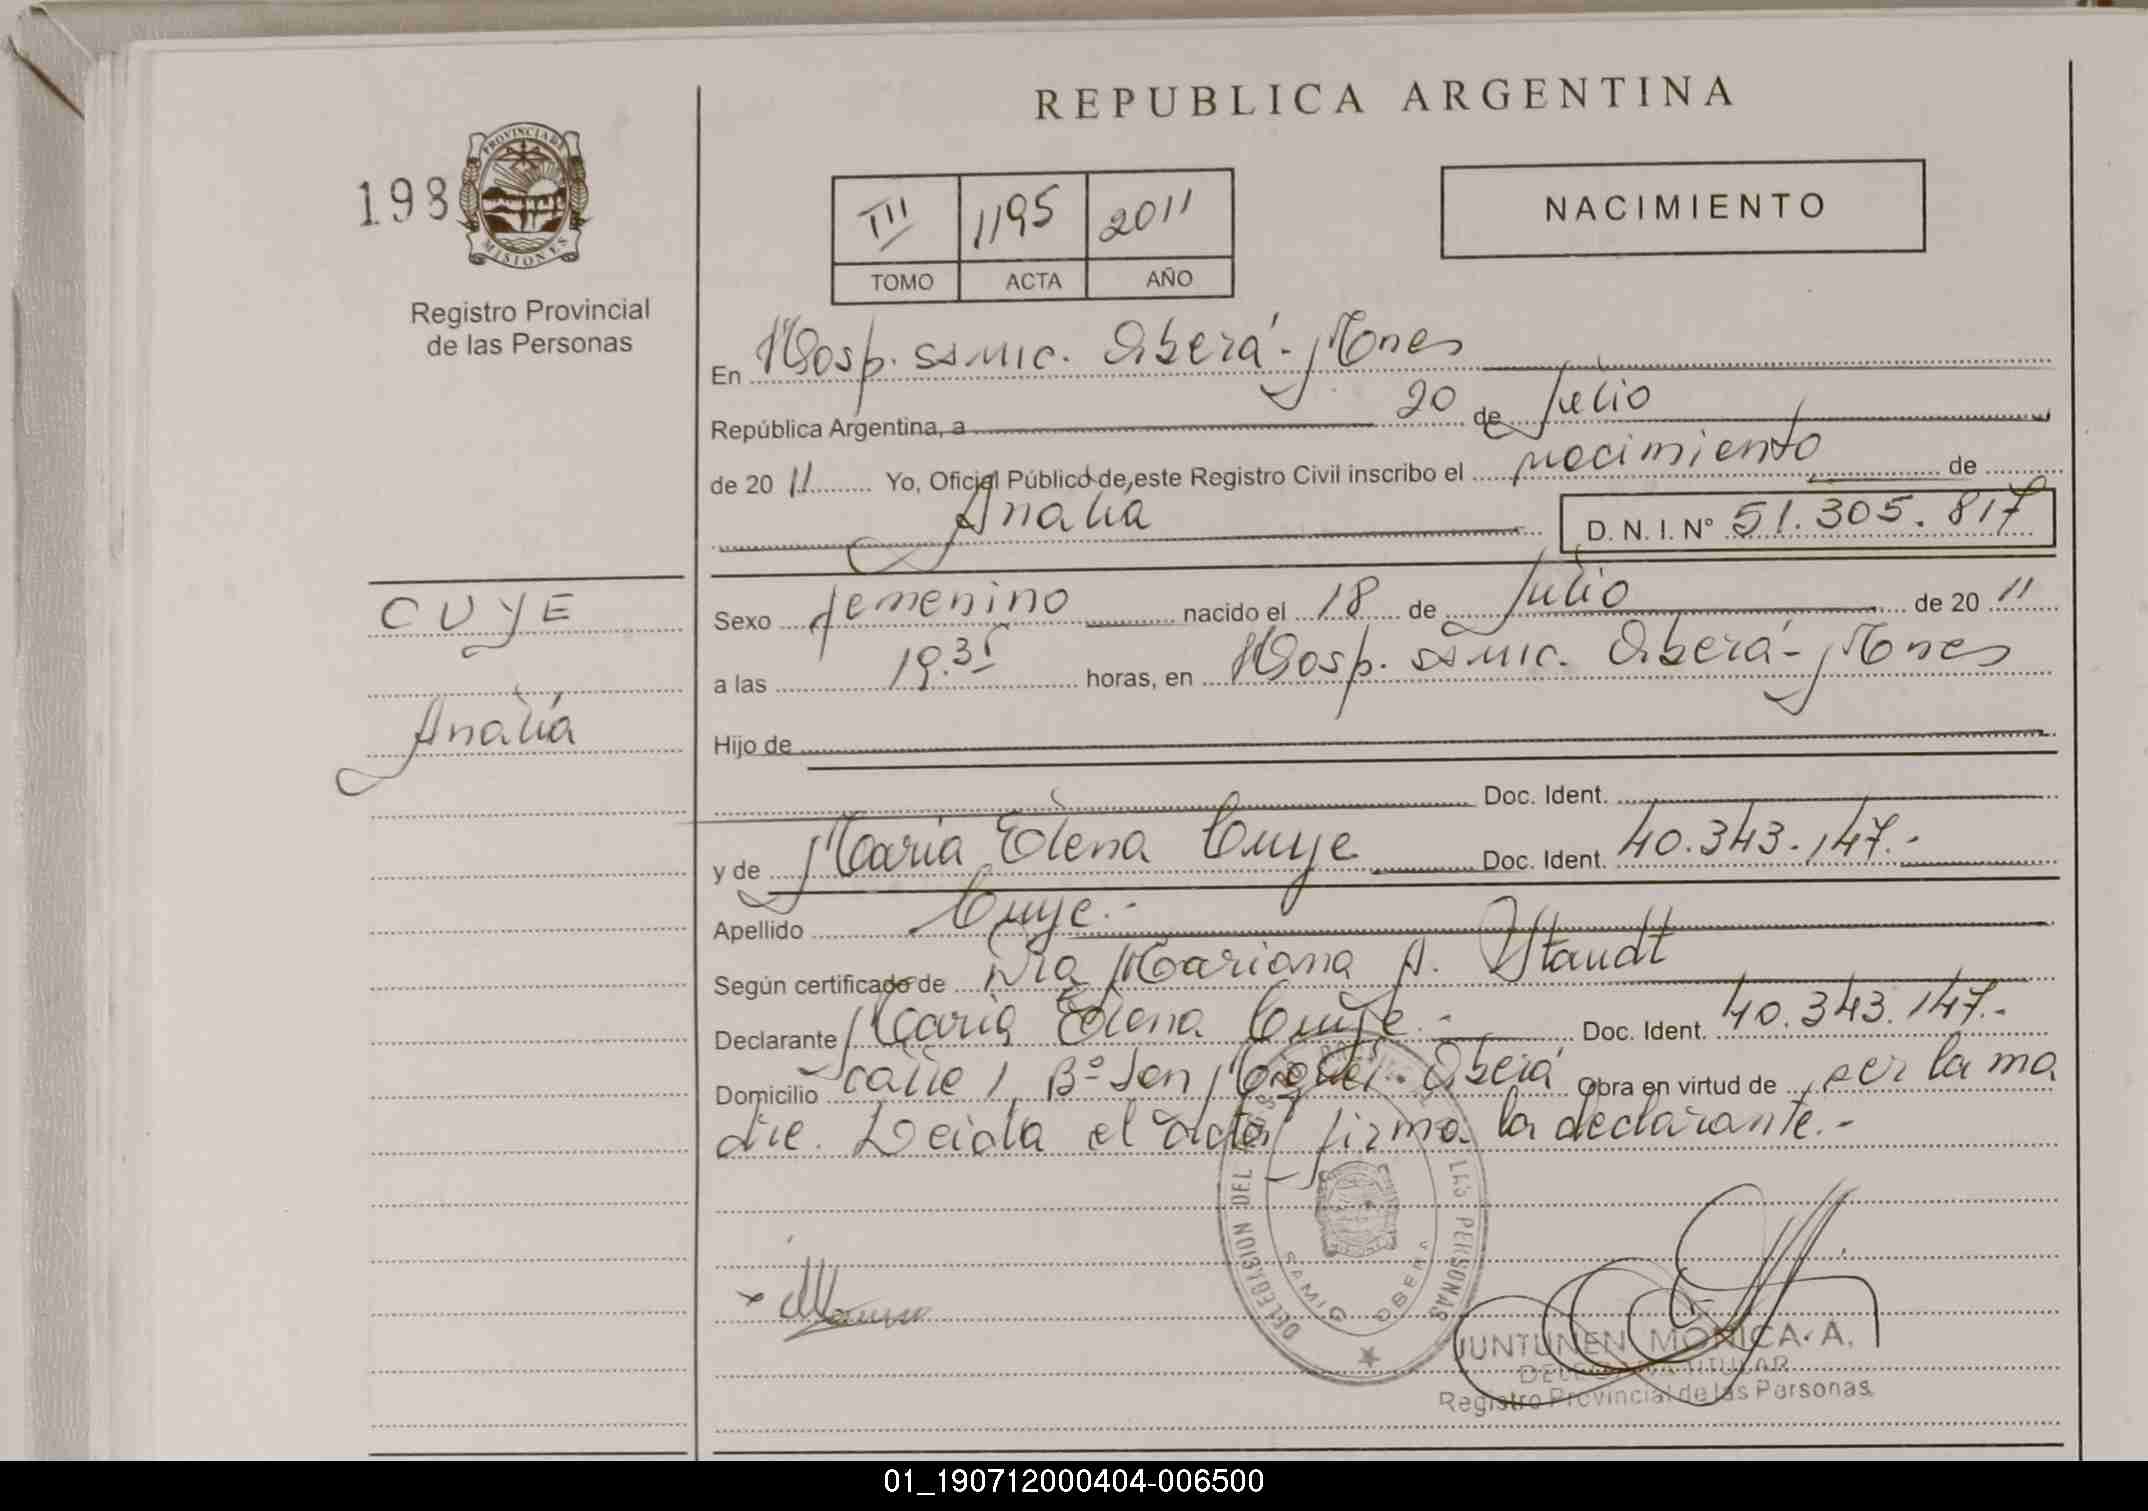 REPUBLICA ARGENTINA
198
PROVINCIA DE
MISIONES
Registro Provincial
de las Personas
III 1195 2011
TOMO ACTA AÑO
NACIMIENTO
En Hosp. SAMIC. Oberá - Mnes
República Argentina, a 20 de Julio
de 20 11 Yo, Oficial Público de este Registro Civil inscribo el nacimiento de
Analia
D. N. I. Nº 51.305.817
CUYE
Analía
Sexo femenino nacido el 18 de Julio de 20 11
a las 19.35 horas, en Hosp. SAMIC. Oberá - Mnes
Hijo de
Doc. Ident.
y de María Elena Cuye Doc. Ident. 40.343.147.-
Apellido Cuye.-
Según certificado de Dra Mariana A. Staudt
Declarante María Elena Cuye.- Doc. Ident. 40.343.147.-
Domicilio calle 1 Bº San Miguel. Oberá Obra en virtud de ser la ma
dre. Leida el acta, firma la declarante.-
DELEGACION DEL LAS PERSONAS
SAMIC OBERA
JUNTUNEN MONICA A.
DELEGADA TITULAR
Registro Provincial de las Personas
01_190712000404-006500